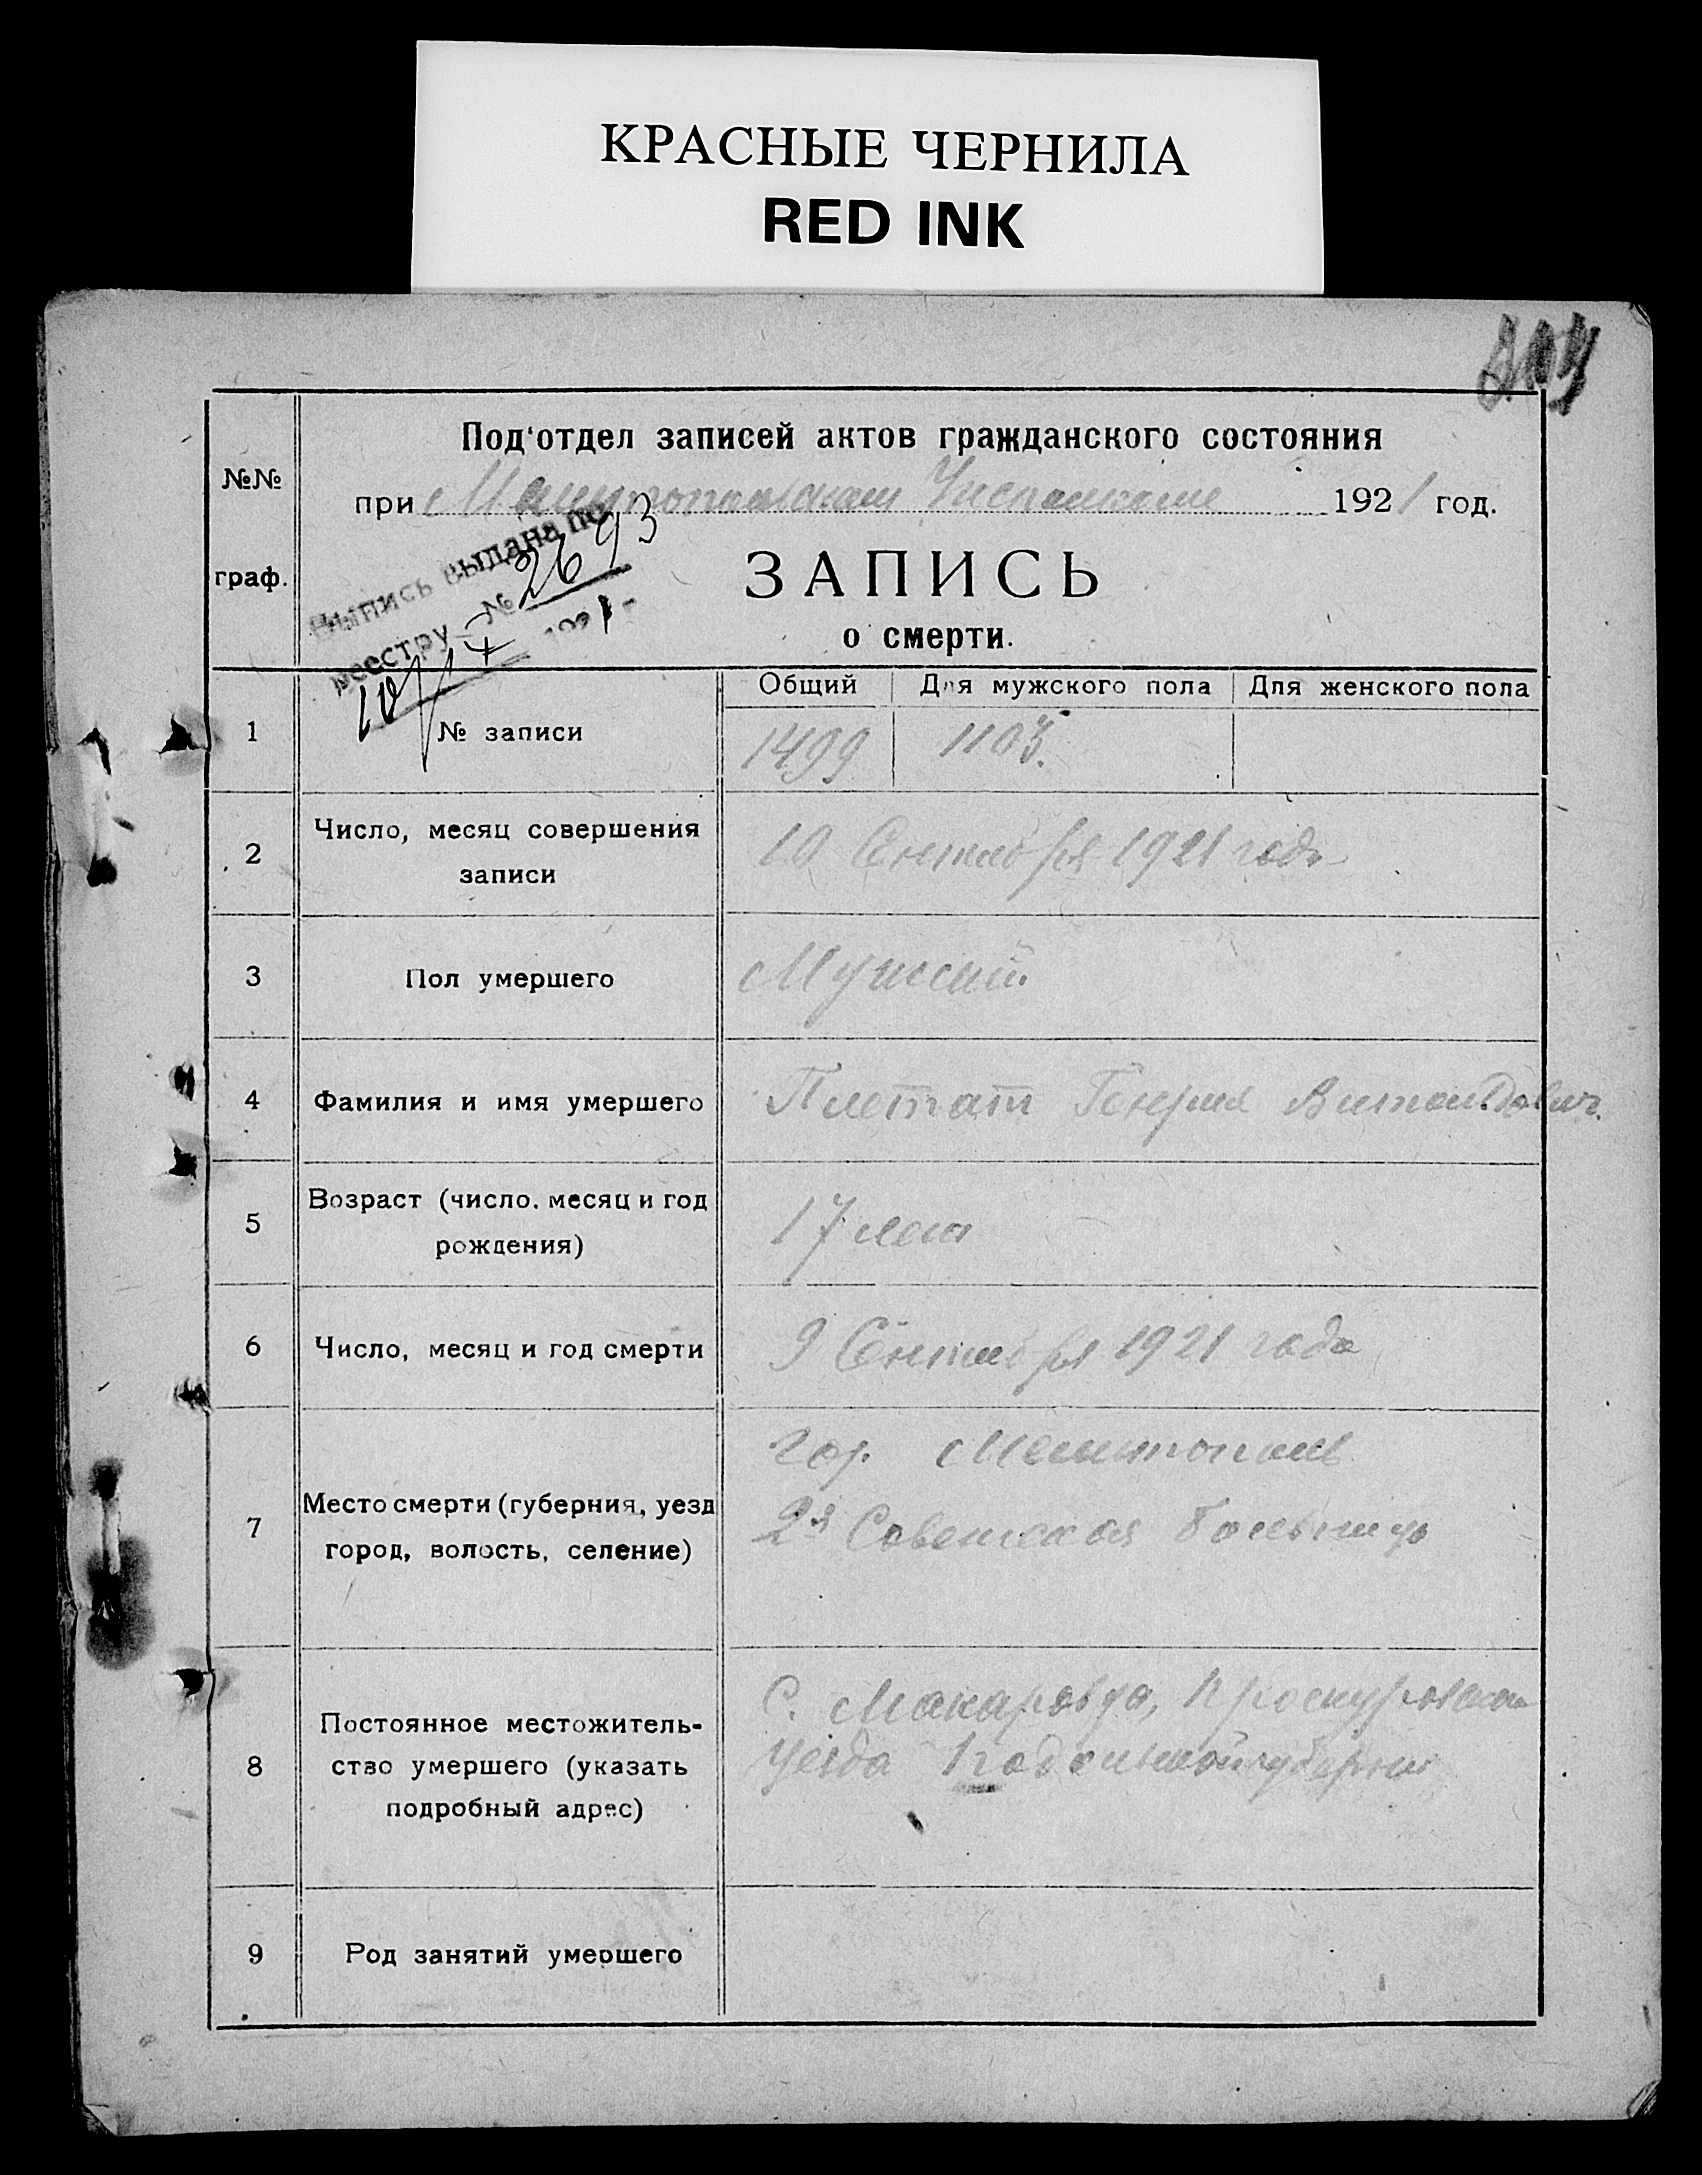 КРАСНЫЕ ЧЕРНИЛА
RED INK
Под'отдел записей актов гражданского состояния
№№ граф.
при Мелитопольском Исполкоме 1921 год.
Выпись выдана по
реестру № 2693
10/X 1921 г.
ЗАПИСЬ
о смерти.
Общий Для мужского пола Для женского пола
1 № записи 1499 1103.
2 Число, месяц совершения
записи
10 Сентября 1921 года
3 Пол умершего Мужской.
4 Фамилия и имя умершего Генрих Витольдович.
5 Возраст (число, месяц и год
рождения)
17 лет
6 Число, месяц и год смерти 9 Сентября 1921 года
7 Место смерти (губерния, уезд
город, волость, селение)
гор. Мелитополь
2я Советская больница
8 Постоянное местожитель-
ство умершего (указать
подробный адрес)
С. Макаровца, Проскуровского
уезда Подольской губернии
9 Род занятий умершего